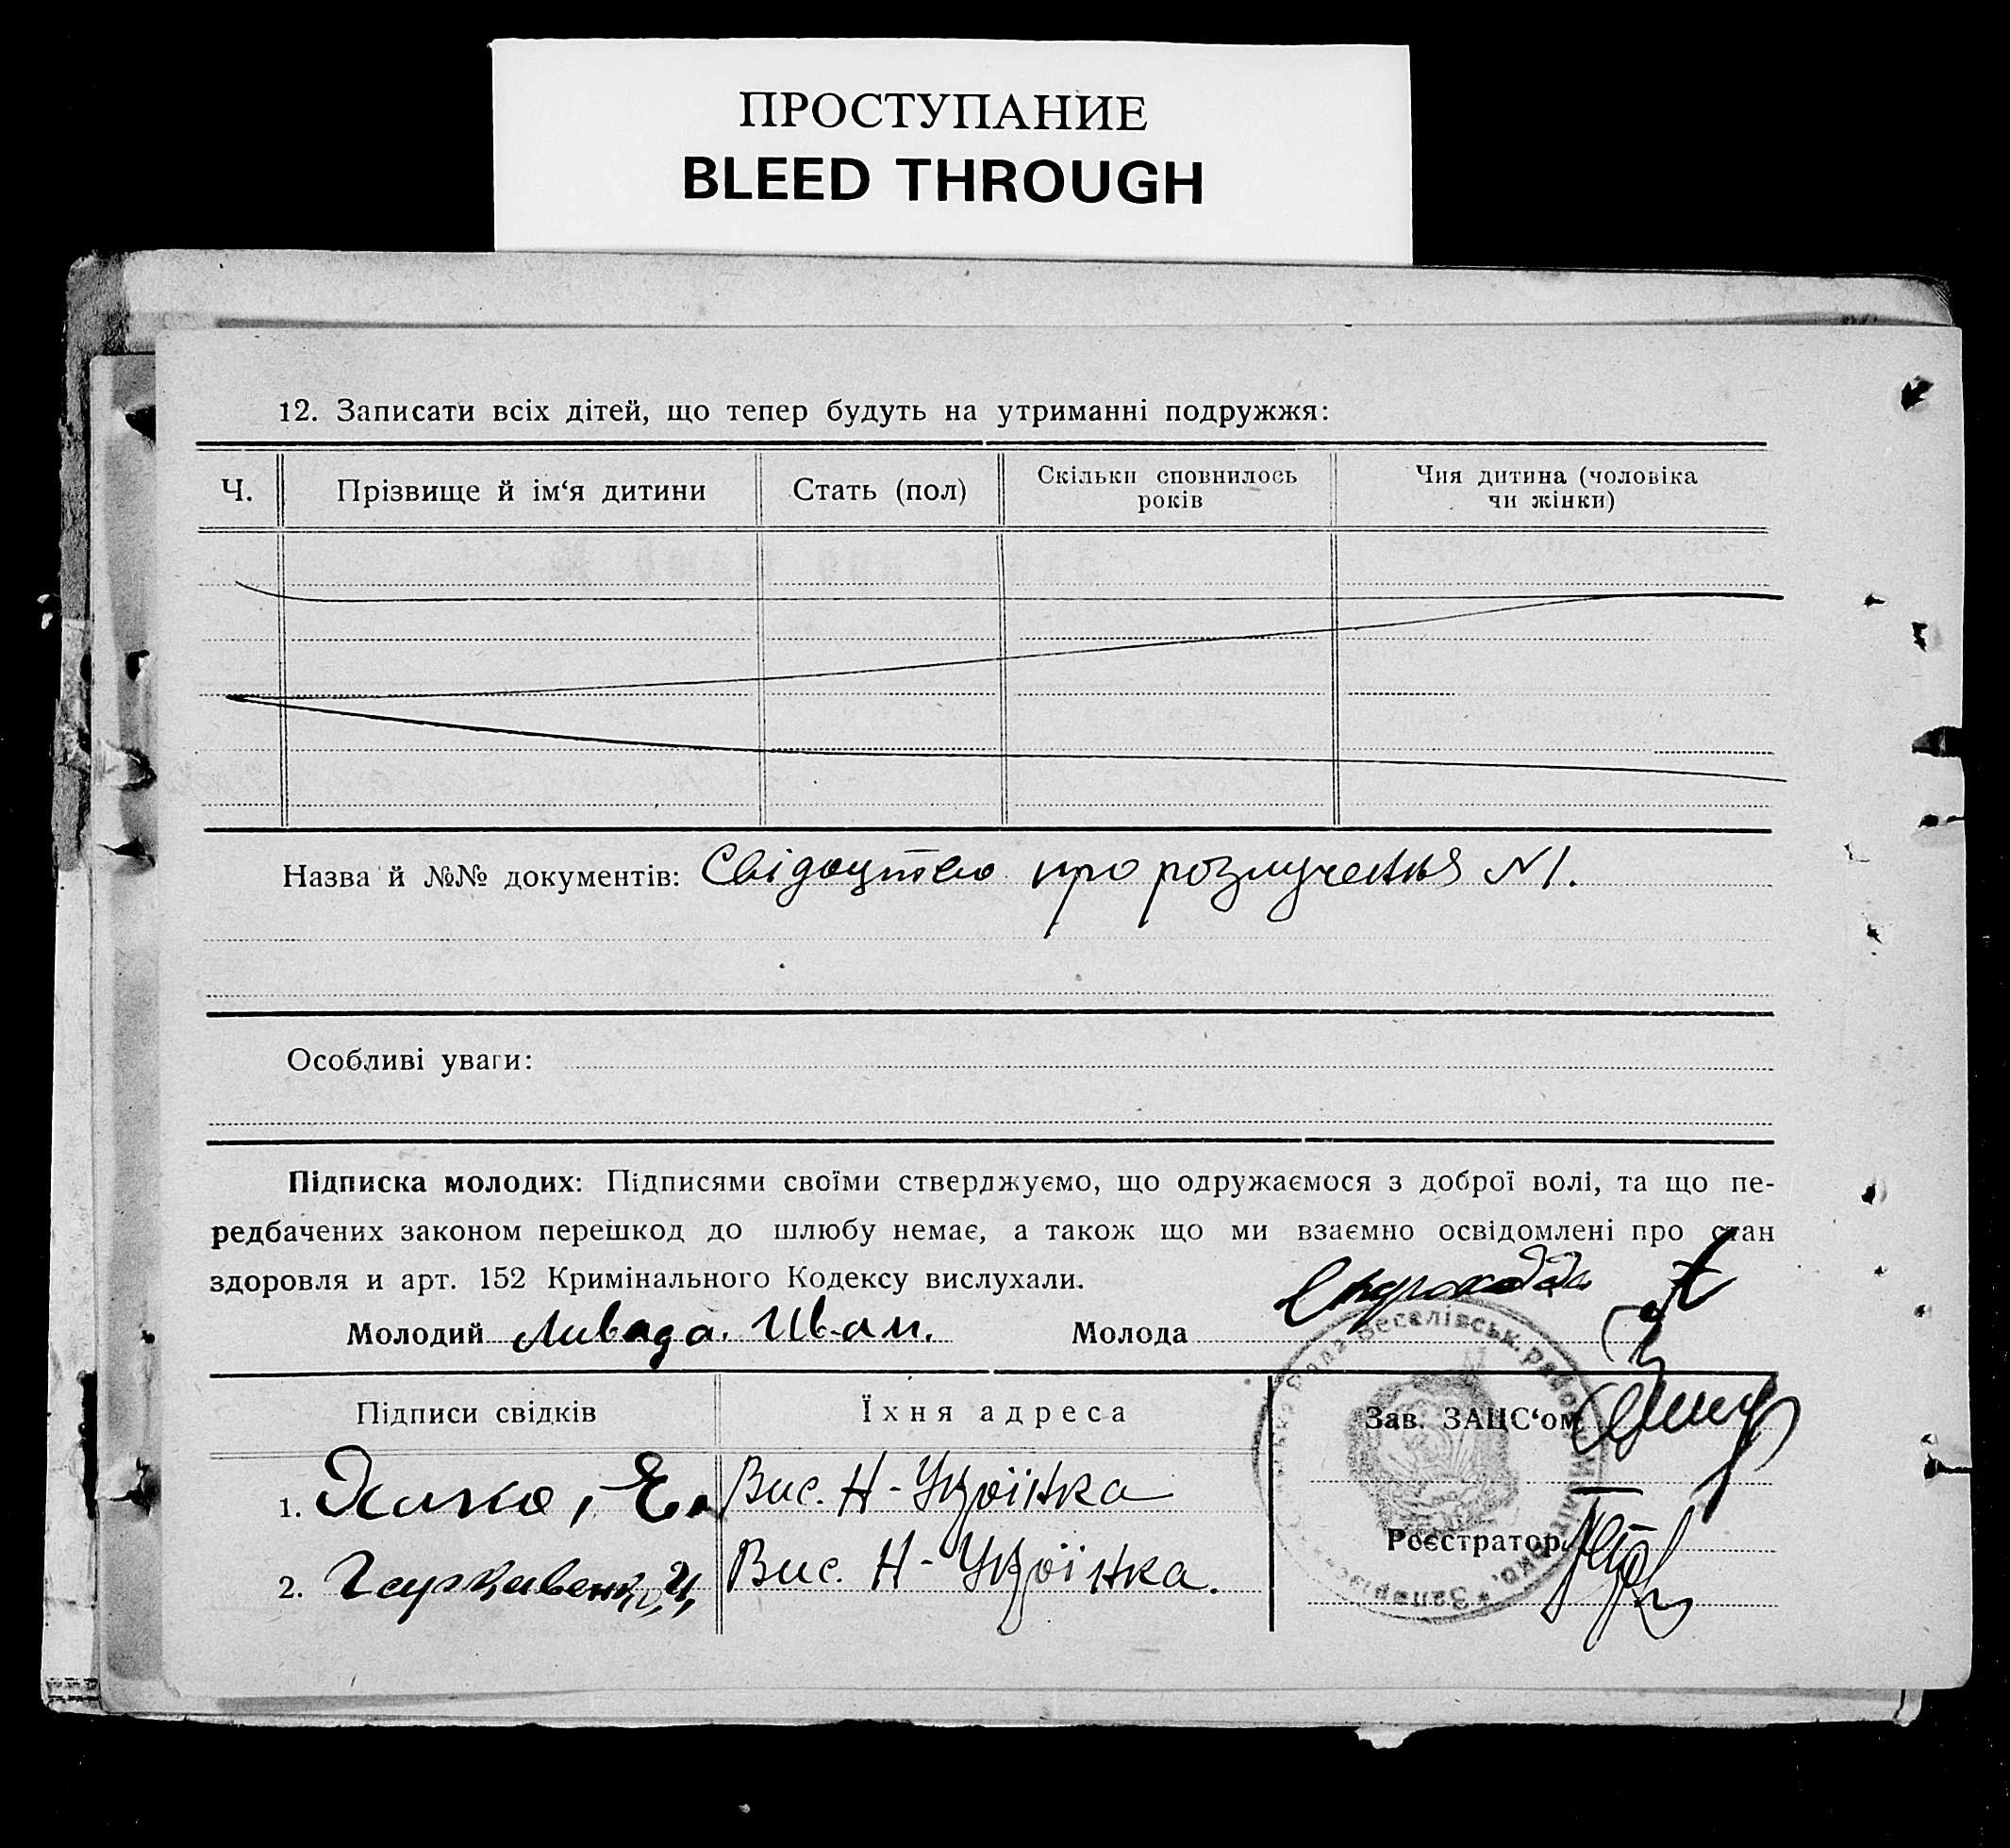 ПРОСТУПАНИЕ
BLEED THROUGH
12. Записати всіх дітей, що тепер будуть на утриманні подружжя:
Ч.
Прізвище й ім‘я дитини
Стать (пол)
Скільки сповнилось
років
Чия дитина (чоловіка
чи жінки)
Назва й №№ документів: Свідоцтво про розлучення N1.
Особливі уваги:
Підписка молодих: Підписями своїми стверджуємо, що одружаємося з доброї волі, та що пе-
редбачених законом перешкод до шлюбу немає, а також що ми взаємно освідомлені про стан
здоровля и арт. 152 Кримінального Кодексу вислухали.
Молодий Ливада. Иван. Молода
Підписи свідків
Їхня адреса
Зав. ЗАЦС‘ом
1. Вис. Н-Украінка
Реєстратор
2. Вис. Н-Украінка.
Веселівськ. район